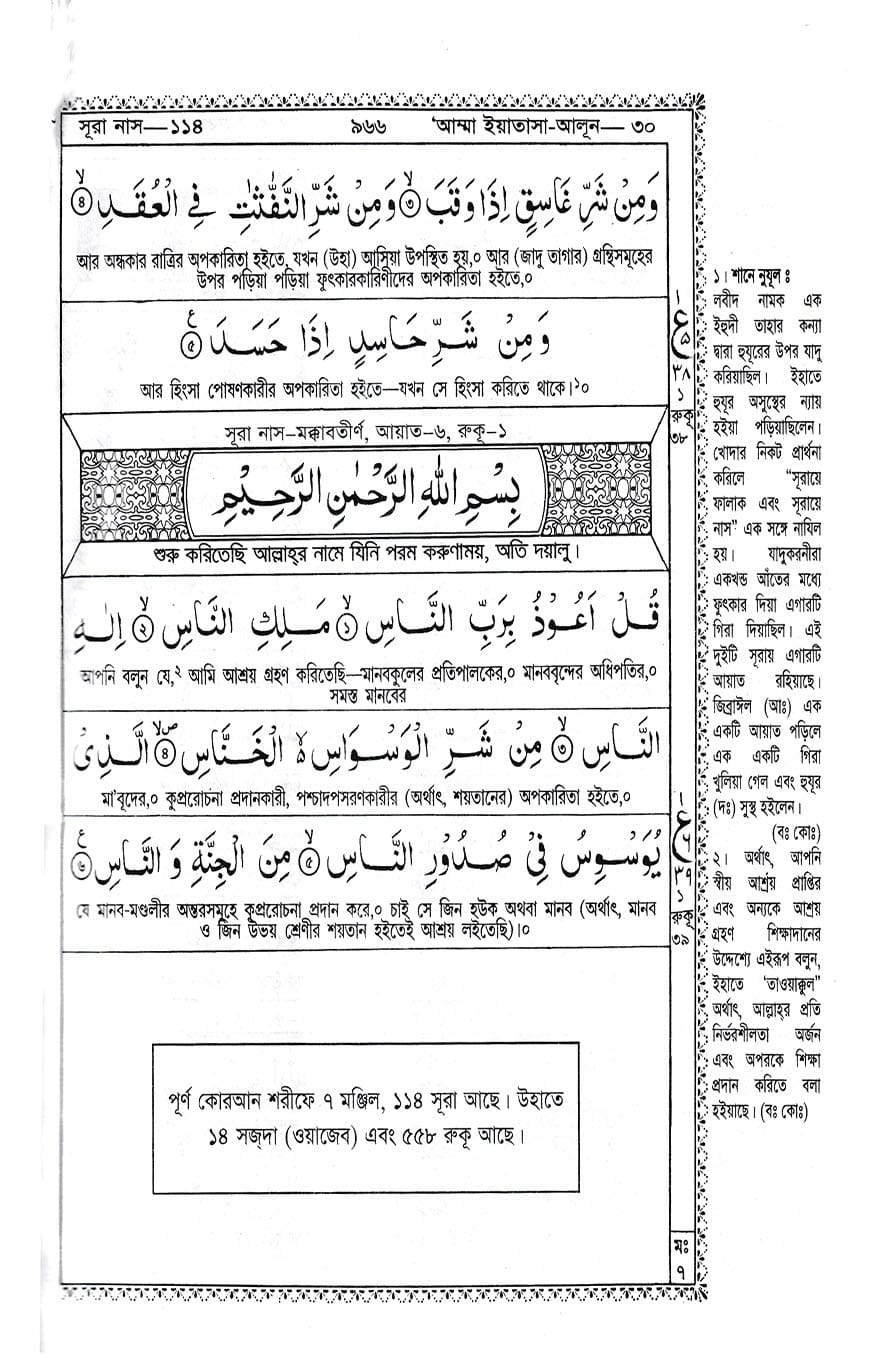 সূরা নাস—১১৪ ৯৬৬ 'আম্মা ইয়াতাসা-আলূন— ৩০
وَمِنْ شَرِّ غَاسِقٍ اِذَا وَقَبَ ۙ﴿۳﴾ وَمِنْ شَرِّ النَّفّٰثٰتِ فِی الْعُقَدِ ۙ﴿۴﴾
আর অন্ধকার রাত্রির অপকারিতা হইতে, যখন (উহা) আসিয়া উপস্থিত হয়,০ আর (জাদু তাগার) গ্রন্থিসমূহের
উপর পড়িয়া পড়িয়া ফূৎকারকারিণীদের অপকারিতা হইতে,০
وَمِنْ شَرِّ حَاسِدٍ اِذَا حَسَدَ ﴿۵﴾
আর হিংসা পোষণকারীর অপকারিতা হইতে—যখন সে হিংসা করিতে থাকে।১০
ع
৫
৩৮
১
রুকূ
৩৮
সূরা নাস–মক্কাবতীর্ণ, আয়াত–৬, রুকূ–১
بِسْمِ اللهِ الرَّحْمٰنِ الرَّحِيْمِ
শুরু করিতেছি আল্লাহ্‌র নামে যিনি পরম করুণাময়, অতি দয়ালু।
قُلْ اَعُوْذُ بِرَبِّ النَّاسِ ۙ﴿۱﴾ مَلِكِ النَّاسِ ۙ﴿۲﴾ اِلٰهِ
আপনি বলুন যে,২ আমি আশ্রয় গ্রহণ করিতেছি—মানবকুলের প্রতিপালকের,০ মানববৃন্দের অধিপতির,০
সমস্ত মানবের
النَّاسِ ۙ﴿۳﴾ مِنْ شَرِّ الْوَسْوَاسِ ۵ الْخَنَّاسِ ۙ﴿۴﴾ الَّذِیْ
মা'বূদের,০ কুপ্ররোচনা প্রদানকারী, পশ্চাদপসরণকারীর (অর্থাৎ, শয়তানের) অপকারিতা হইতে,০
يُوَسْوِسُ فِیْ صُدُوْرِ النَّاسِ ۙ﴿۵﴾ مِنَ الْجِنَّةِ وَ النَّاسِ ﴿۶﴾
যে মানব-মণ্ডলীর অন্তরসমূহে কুপ্ররোচনা প্রদান করে,০ চাই সে জিন হউক অথবা মানব (অর্থাৎ, মানব
ও জিন উভয় শ্রেণীর শয়তান হইতেই আশ্রয় লইতেছি)।০
ع
৬
৩৯
১
রুকূ
৩৯
পূর্ণ কোরআন শরীফে ৭ মঞ্জিল, ১১৪ সূরা আছে। উহাতে
১৪ সজ্‌দা (ওয়াজেব) এবং ৫৫৮ রুকূ আছে।
মঃ
৭
১। শানে নুযূল ঃ
লবীদ নামক এক
ইহুদী তাহার কন্যা
দ্বারা হুযূরের উপর যাদু
করিয়াছিল। ইহাতে
হুযূর অসুস্থের ন্যায়
হইয়া পড়িয়াছিলেন।
খোদার নিকট প্রার্থনা
করিলে “সূরায়ে
ফালাক এবং সূরায়ে
নাস” এক সঙ্গে নাযিল
হয়। যাদুকরনীরা
একখন্ড আঁতের মধ্যে
ফূৎকার দিয়া এগারটি
গিরা দিয়াছিল। এই
দুইটি সূরায় এগারটি
আয়াত রহিয়াছে।
জিব্রাঈল (আঃ) এক
একটি আয়াত পড়িলে
এক একটি গিরা
খুলিয়া গেল এবং হুযূর
(দঃ) সুস্থ হইলেন।
(বঃ কোঃ)
২। অর্থাৎ, আপনি
স্বীয় আশ্রয় প্রাপ্তির
এবং অন্যকে আশ্রয়
গ্রহণ শিক্ষাদানের
উদ্দেশ্যে এইরূপ বলুন,
ইহাতে ‘তাওয়াক্কুল”
অর্থাৎ, আল্লাহ্‌র প্রতি
নির্ভরশীলতা অর্জন
এবং অপরকে শিক্ষা
প্রদান করিতে বলা
হইয়াছে। (বঃ কোঃ)